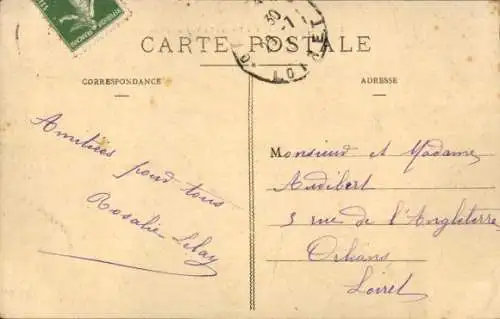 CARTE POSTALE
CORRESPONDANCE
ADRESSE
30
LOIRET
Amitiées pour tous
Rosalie Lelay
Monsieur et Madame
Audibert
3 rue de l'Angleterre
Orléans
Loiret